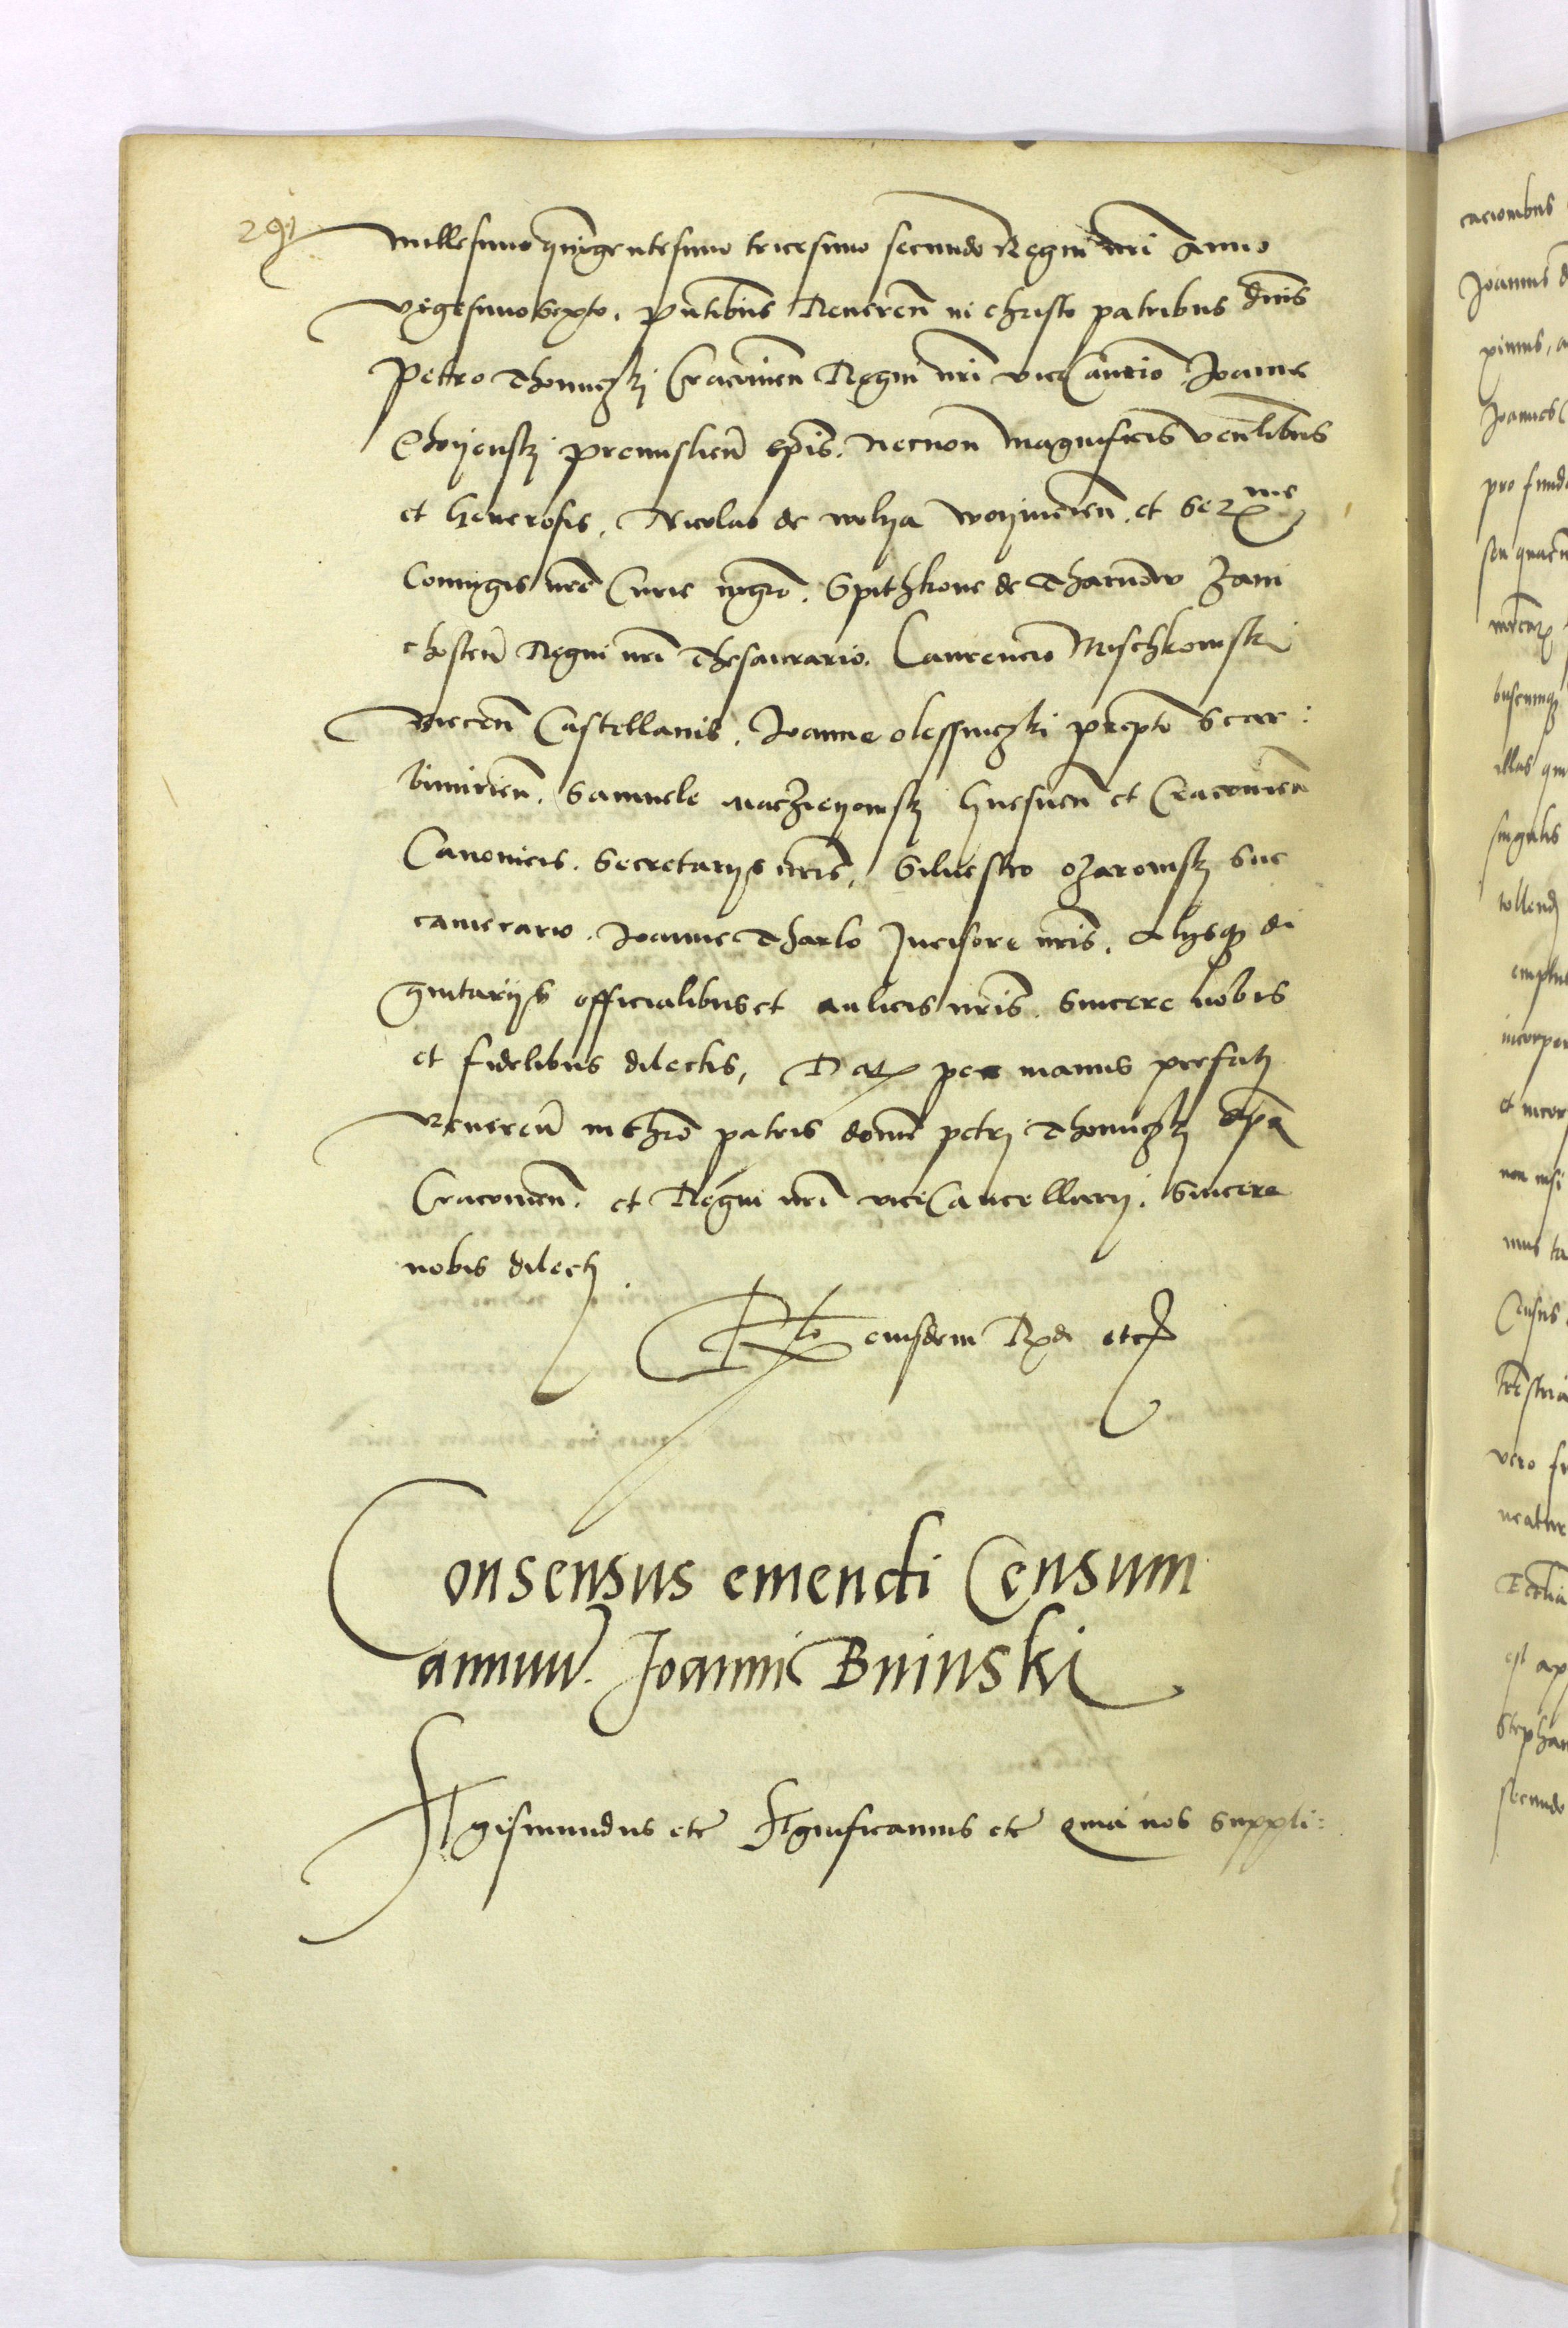 291
millesimo quingentesimo tricesimo secundo Regni nri Anno
vigesimosexto. Pntibus Reueren in christo patribus dnis
Petro Thomiczki Cracouien Regni nri vicecancrio Joanne
Choyensky premislien epis. Necnon Magnificis venlibus
et Generosis, Nicolao de wolya woynicien. et Ser me
Coniugis nre Curie mgro. Spithkone de Tharnow Zawi
chosten Regni nri Thesaurario. Laurencio Mischkowski
Biecen Castellanis, Joanne olessniczki prepto Scar:
bimirien. Samuele Maczieyowsky Gnesnen et Cracouien
Canonicis. Secretarijs nris, Siluestro ozarowsky suc
camerario. Joanne Tharlo Incisore nris. Alijsq di
gnitarijs officialibus et aulicis nris. Sincere nobis
et fidelibus dilectis, Dat per manus prefati
Reueren in chro patris domi petri Thomiczki Epi
Cracouien. et Regni nri viceCancellarij. Sincere
nobis dilecti
Rlo eiusdem Rxdi etc
Consensus emendi Censum
annuu. Joanni Bninski
Sigismundus etc Significamus etc Quia nos suppli:
cacionibus
Joannis d
pinnis, a
Joannes
pro fund
illas qu
singulis
tollend
incorpor
et incor
non nisi
mus ta
Census
vero fr
neatur
est ap
Stephan
secundo